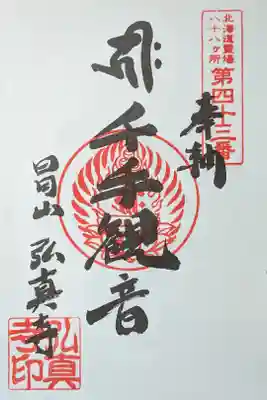 北海道霊場
八十八ヶ所
第四十三番
奉納
千手観音
山 弘真寺
弘真
寺印